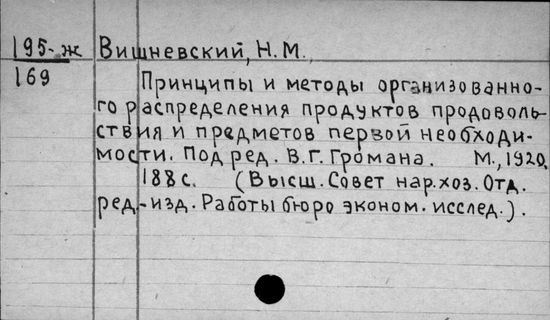 195-ж Вишневский, Н.М.,
169 Принципы и методы организованно-
го распределения продуктов продоволь-
ствия и предметов первой необходи-
мости. Под ред. В.Г. Громана. М., 1920.
188с. (Высш. Совет нар.хоз. Отд.
ред.-изд. Работы бюро эконом. исслед.).